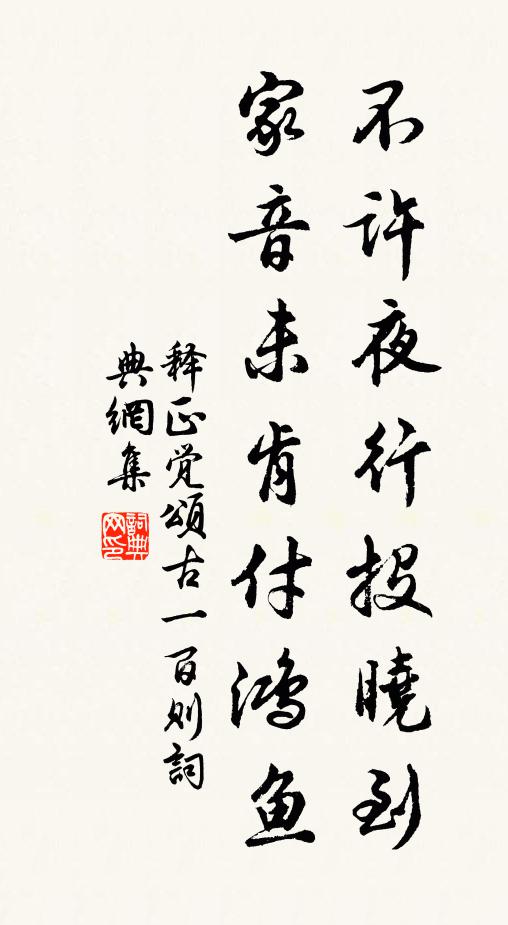 不许夜行投曉到
家音未肯付鸿鱼
释正觉頌古一百则詞
典網集
詞典
网印